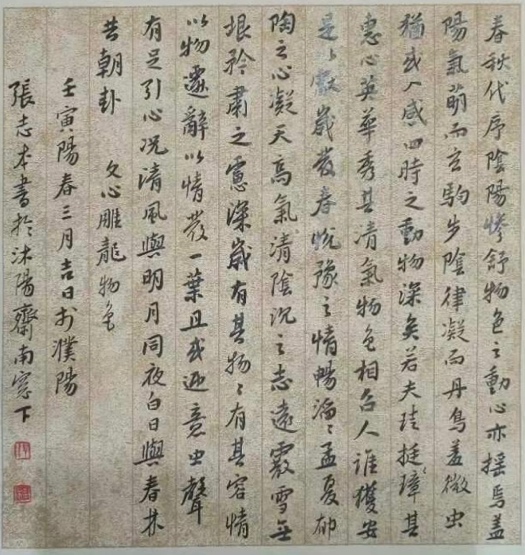 春秋代序陰陽慘舒物色之動心亦搖焉蓋
陽氣萌而玄駒步陰律凝而丹鳥羞微虫
猶或入感四時之動物深矣若夫珪挺璋其
惠心英華秀其清氣物色相召人誰獲安
是以獻歲發春悅豫之情暢滔〻孟夏郁
陶之心凝天高氣清陰沉之志遠霰雪無
垠矜肅之慮深歲有其物〻有其容情
以物遷辭以情發一葉且或迎意虫聲
有足引心况清風與明月同夜白日與春林
共朝哉 文心雕龍物色
壬寅陽春三月吉日於濮陽
張志本書於沐陽齋南窗下